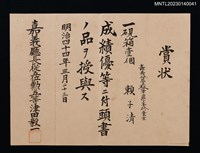 MNTL20230140041
賞状
一硯箱壱個
賴子清
成績優等ニ付頭書
ノ品ヲ授與ス
明治四十四年三月二十三日
嘉義廳長從五位勲五等津田毅一